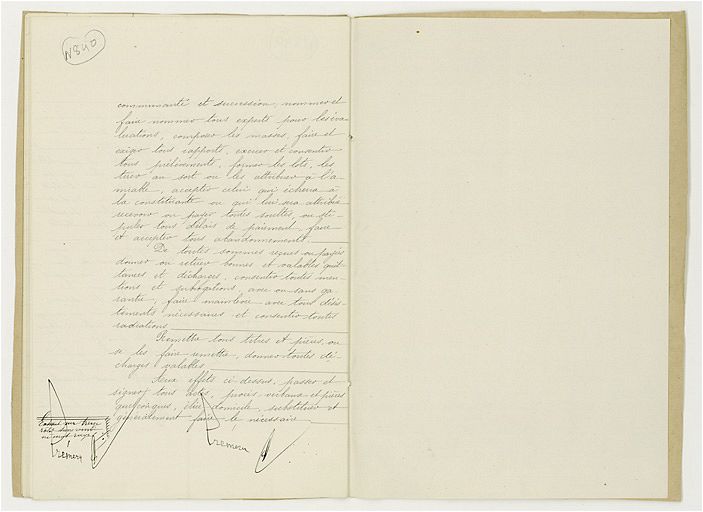 N840
communauté et succession, nommer et
faire nommer tous experts pour les éva-
luations, composer les masses, faire et
exiger tous rapports, exercer et consentir
tous prélèvements, former les lots, les
tirer au sort ou les attribuer à l'a-
miable, accepter celui qui écherra à
la constituante ou qui lui sera attribué
recevoir ou payer toutes soultes, ou sti-
puler tous délais de paiement, faire
et accepter tous abandonnements.
De toutes sommes reçues ou payées
donner ou retirer bonnes et valables quit-
tances et décharges, consentir toutes men-
tions et subrogations, avec ou sans ga
rantie, faire mainlevée avec tous désis-
tements nécessaires et consentir toutes
radiations.
Remettre tous titres et pièces, ou
se les faire remettre, donner toutes dé-
charges valables.
Aux effets ci-dessus, passer et
signer tous actes, procès-verbaux et pièces
quelconques, élire domicile, substituer et
généralement faire le nécessaire